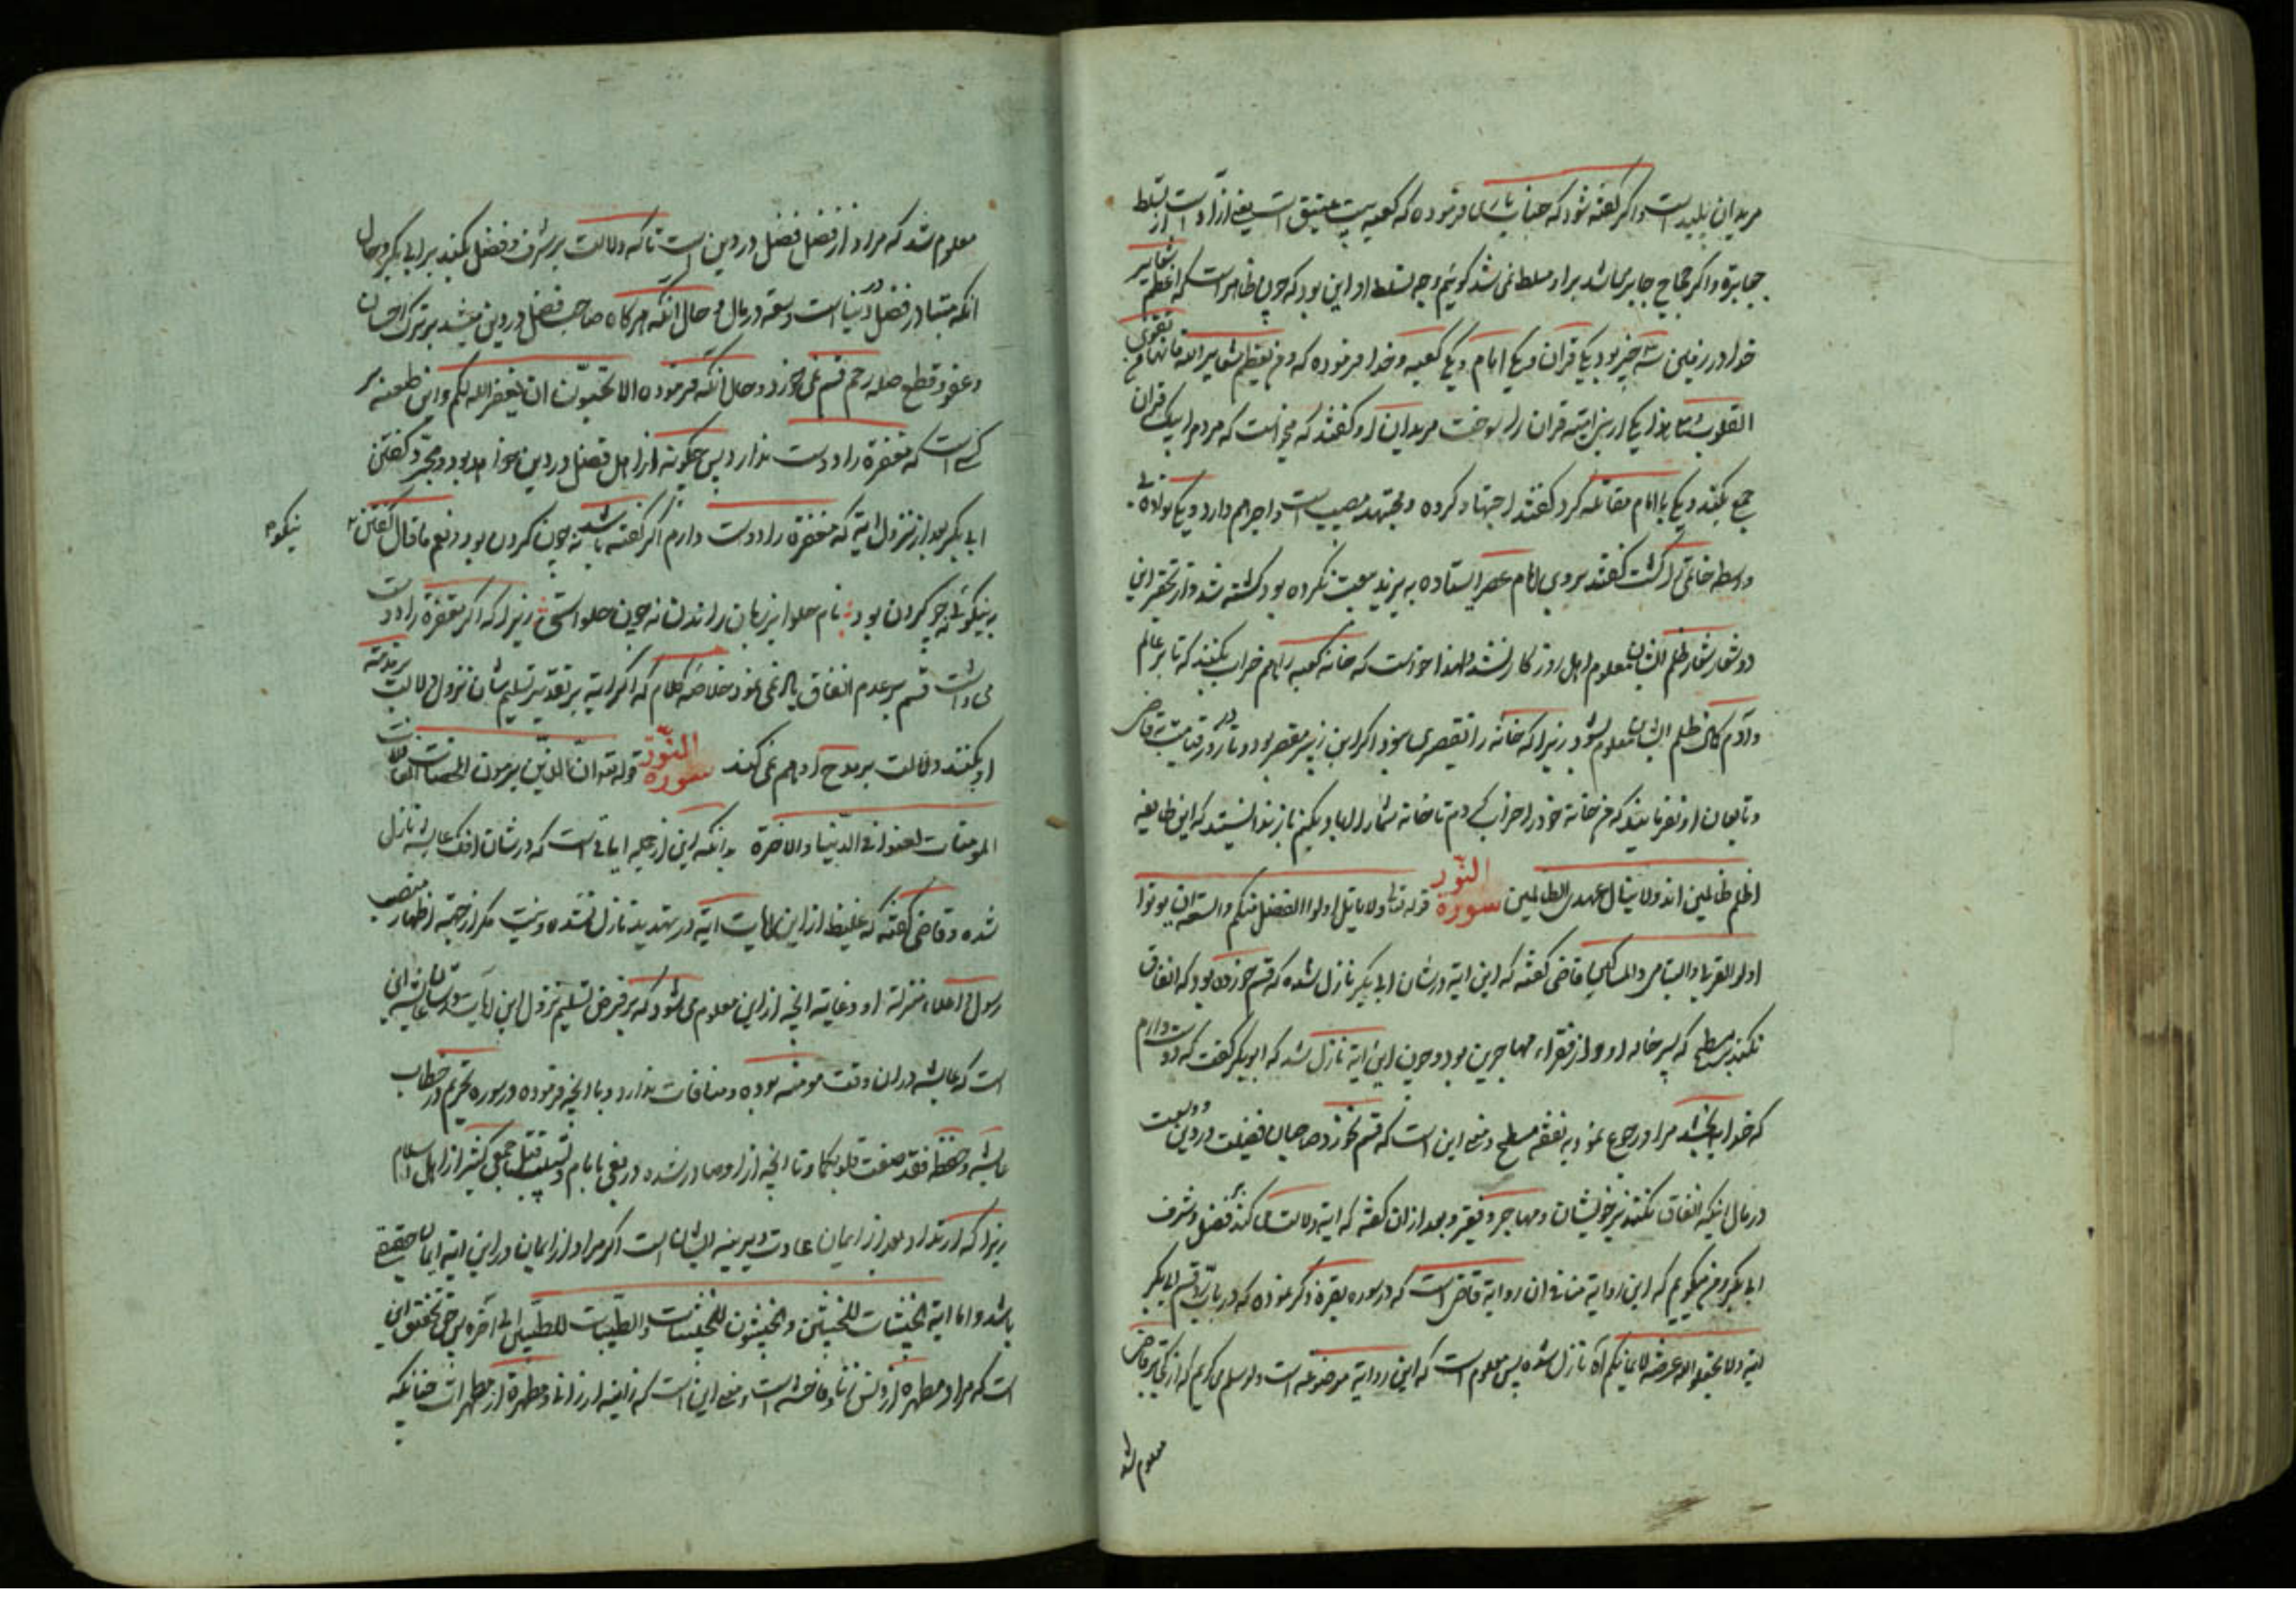 مریدان پلید است و اگر گفته شود که جناب باری فرموده که کعبه بیت عتیق است یعنی ازاد است از تسلط
جبابره و اگر حجاج جابر می باشد بر او مسلط نمی شد کوئیم وجه تسلط او این بود که چون ظاهر است که اعظم شعایر
خدا در زمین سه چیز بود یکی قران و یکی امام و یکی کعبه و خدا فرموده که و من یعظم شعایر الله فانها من تقوی
القلوب یکی از بنی امیه قران را بسوخت مریدان او گفتند که میخواست که مردم را بیک قران
جمع بکند و یکی با امام مقاتله کرد گفتند اجتهاد کرده و مجتهد مصیب است و اجر هم دارد و یکی
واسطه گشت گفتند بروی امام عصر ایستاده به یزید بیعت نکرده بود کشته شد و از تحقیر این
دو شعار ظلم ایشان معلوم اهل روزکار نشد لهذا خواست که خانه کعبه را هم خراب بکنند که تا بر عالم
و آدم ظلم ایشان معلوم بشود زیرا که خانه را تقصیری نبود اکر ابن زبیر مقصر بود و تا در قیامت قاضی
و تابعان او نفرمایند که من خانه خود را خراب کردم تا خانه شما را اباد بکنم باز ندانستید که این طایفه
اظلم ظالمین اند و لا ینال عهدی الظالمین سورة النّور قوله تعالی و لا یاتل اولوا الفضل منکم و السعة ان یوتوا
اولی القربی و الیتامی و المساکین قاضی گفته که این ایة در شان ابی بکر نازل شده که قسم خورده بود که انفاق
نکند بر مسطح که پسر خاله او و از فقراء مهاجرین بود و چون این ایة نازل شد که ابو بکر گفت که دوست دارم
که خدا ببخشد مرا و رجوع نمود به نفقه مسطح و معنی این است که قسم نخورد صاحبان فضیلت در دین و وسعت
در مال اینکه انفاق نکنند بر خویشان و مهاجر و فقیر و بعد از ان گفته که ایة دلالت می کند بر فضل و شرف
ابی بکر و من میکویم که این روایة منافی ان روایة قاضی است که در سوره بقره ذکر نموده که در باب قسم ابی بکر
ایة و لا تجعلوا الله عرضة لایمانکم آه نازل شده پس معلوم است که این روایة موضوعه است و لو سلم می کویم که از کجا بر قاضی
معلوم شد
معلوم شد که مراد از فضل فضل در دین است تا که دلالت بر شرف و فضل بکند بر ابی بکر و حال
انکه متبادر از فضل در دنیا است و سعه در مال و حال انکه هر کاه صاحب فضل در دین میشد بر ترک احسان
و عفو و قطع صله رحم قسم نمی خورد و حال انکه فرموده الا تحبّون ان یغفر الله لکم و این طعنه بر
کسی است که مغفرة را دوست ندارد پس چکونه از اهل فضل در دین خواهد بود و مجرّد گفتن
ابی بکر بعد از نزول ایة که مغفرة را دوست دارم اکر گفته باشد نه چون کردن بود و نعم ما قال گفتن
نیکو
به نیکوئی نه چو کردن بود نام حلوا بر زبان راندن نه چون حلواستی زیرا که اکر مغفرة را دوست
می داشت قسم بر عدم انفاق یاد نمی نمود خلاصه کلام که اکر ایة بر تقدیر تسلیم شان نزول دلالت بر مذمة
او بکنند دلالت بر مدح او هم نمی کند سورة النّور قوله تعه انّ الذّین یرمون المحصنات الغافلات
المومنات لعنوا فی الدّنیا و الاخرة بدانکه این از جمله ایاتی است که در شان افک عایشه نازل
شده و قاضی گفته که غلیظ از این ایات ایة در تهدید نازل نشده و نیست مکر از جهة اظهار منصب
رسول و اعلاء منزلة او و غایة انچه از این معلوم می شود که بر فرض تسلیم نزول این ایات در شان عایشه این
است که عایشه در ان وقت مومنه بوده و منافات ندارد و با انچه فرموده در سوره تحریم در خطاب
عایشه و حفصه فقد صغت قلوبکما و تا انچه از او صادر شده در بغی با امام و تسبیب قتل جمعی کثیر از اهل اسلام
زیرا که ارتداد بعد از ایمان عادت دیرینه ایشان است اکر مراد از ایمان در این ایة ایمان حقیقی
باشد و اما ایة الخبیثات للخبیثین و الخبیثون للخبیثات و الطیّبات للطّیبین الی آخره پس حق تحقیق این
است که مراد مطهره از زنا و فاحشه است و معنی این است که زانیه از زانی و مطهرة از مطهرات چنانکه